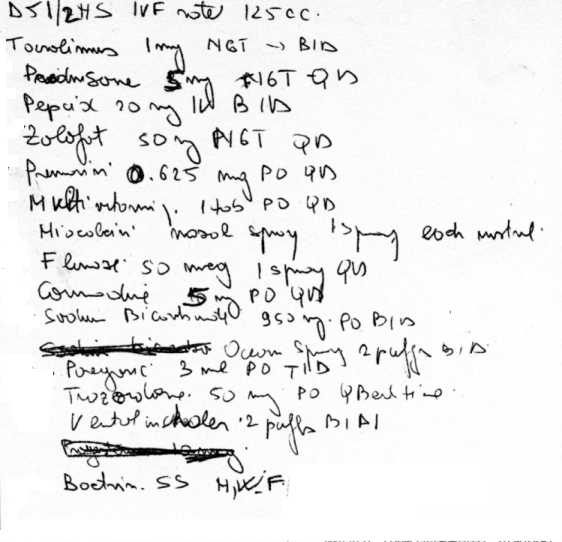 D51/2HS IVF rate 125cc.
Tacrolimus 1mg NGT → BID
Prednisone 5mg NGT QD
Pepcid 20 mg IV BID
Zoloft 50mg NGT QD
Premarin 0.625 mg PO QD
Multivitamin. 1 tab PO QD
Miacalcin nasal spray 1 spray each nostril.
Flonase 50 mcg 1 spray QD
5 mg PO QD
Sodium Bicarbonate 950 mg. PO BID
Ocean Spray 2 puffs BID.
Paregoric 3 ml PO TID
Trazodone. 50 mg PO QBedtime.
Ventolin inhaler. 2 puffs BID
Bactrim. SS M,W,F.